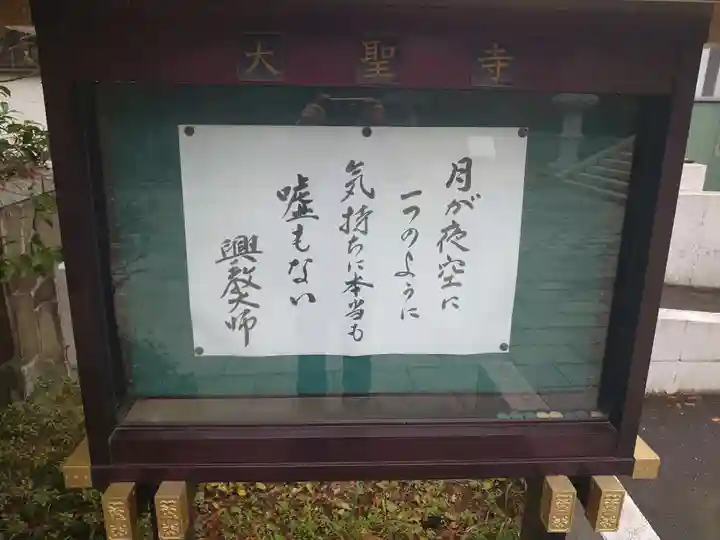 大聖寺
月が夜空に
一つのように
気持ちに本当も
嘘もない
興教大師